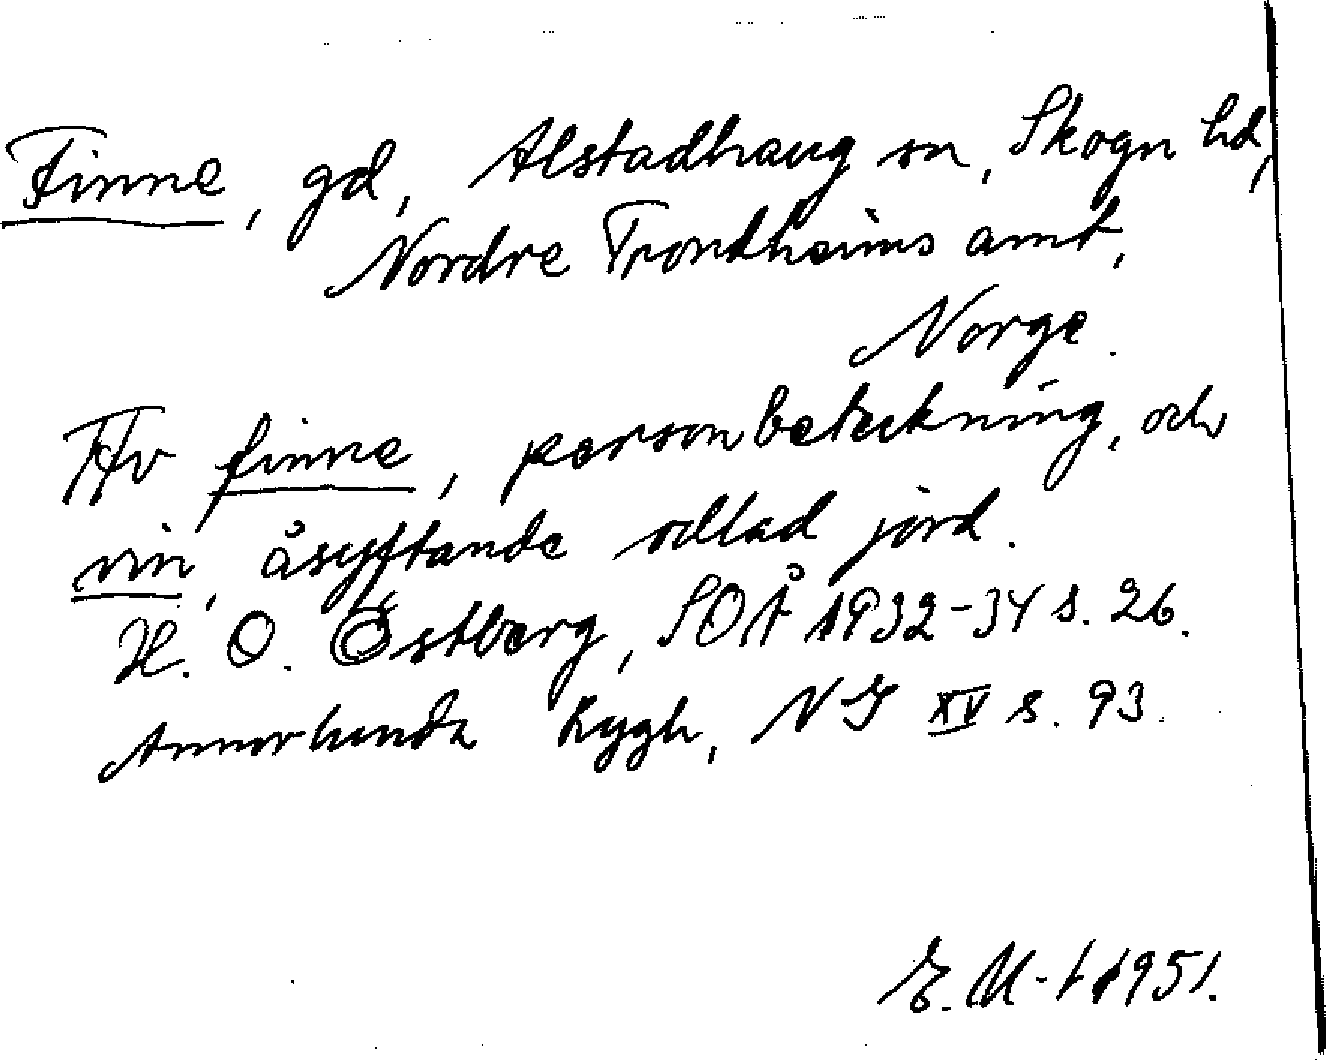 Finne, gd, Alstadhaug sn, Skogn hd,
Nordre Trondheims amt,
Norge.
Av finne, personbeteckning, och
vin, åsyftande odlad jord.
H. O. Östberg, SOÅ 1932-34 s. 26.
Annorlunda Rygh, NG XV s. 93.
E. M-t 1951.